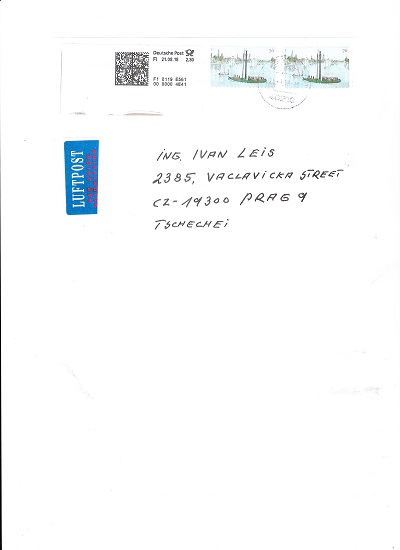 Deutsche Post
FI 21.09.10 2,30
F1 0119 E561
00 0000 4041
LUFTPOST
ING. IVAN LEIS
2385, VACLAVICKA STREET
CZ-19300 PRAG 9
TSCHECHEI